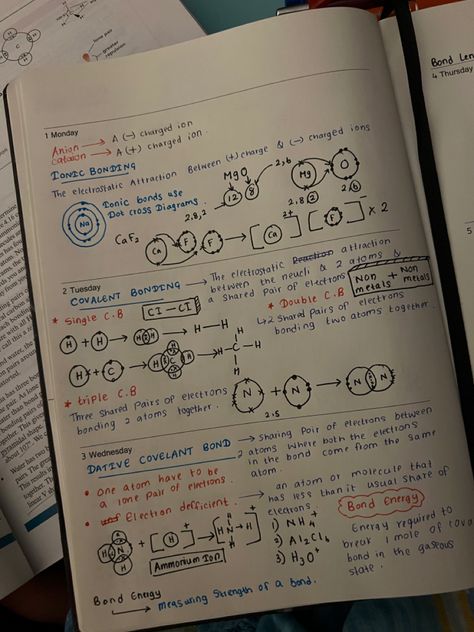 lone pair
greater
repulsion
Bond Len
4 Thursday
5
1 Monday
Anion → A (-) charged ion
Cataion → A (+) charged ion.
IONIC BONDING
The electrostatic Attraction Between (+) charge & (-) charged ions
Na
Ionic bonds use
Dot cross Diagrams.
2,8,2
MgO
12 8
2,6
Mg O
2.8.2
2.6
CaF2
Ca F F → [Ca]2+ [F]- × 2
2 Tuesday
COVALENT BONDING → The electrostatic attraction
between the neucli & 2 atoms &
a shared pair of electrons
Non metals + Non metals
* Single C.B
Cl — Cl
* Double C.B
↳ 2 Shared Pairs of electrons
bonding two atoms together.
H + H → H H → H — H
H + C → H C H → H — C — H
* triple C.B
Three Shared Pairs of electrons
bonding 2 atoms together.
N + N → N N
2.5
3 Wednesday
DATIVE COVELANT BOND → Sharing Pair of electrons between
2 atoms where both the electrons
in the bond come from the same
atom.
• One atom have to be
a lone pair of electrons.
• Electron defficient. → an atom or molecule that
has less than it usual share of
electrons
H N H H + [H]+ → [H N H]+
Ammonium Ion
1) NH4+
2) Al2Cl6
3) H3O+
Bond Energy
Energy required to
break 1 mole of cova
bond in the gaseous
state.
Bond Energy
→ Measuring Strength of a bond.